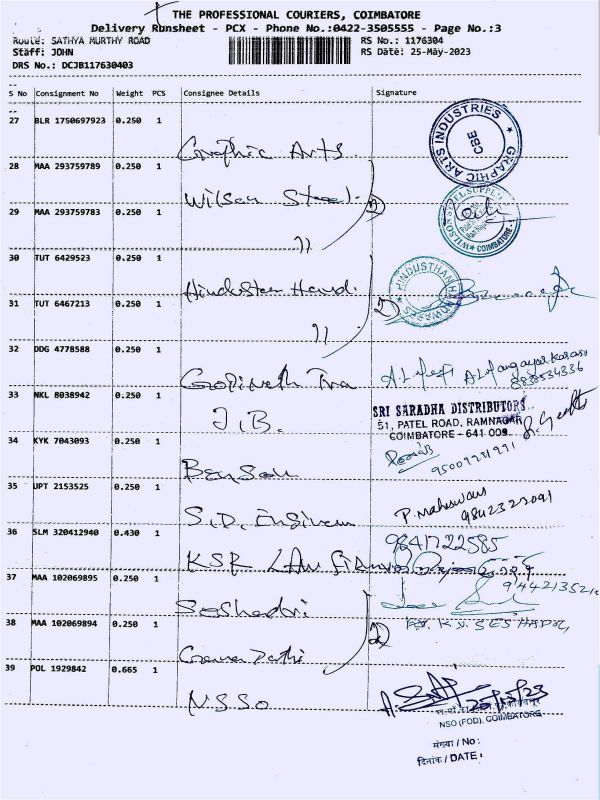 THE PROFESSIONAL COURIERS, COIMBATORE
Delivery Runsheet - PCX - Phone No.:0422-3505555 - Page No.:3
Route: SATHYA MURTHY ROAD RS No.: 1176304
Staff: JOHN RS Date: 25-May-2023
DRS No.: DCJB117630403
S No Consignment No Weight PCS Consignee Details Signature
27 BLR 1750697923 0.250 1
Graphic Arts GRAPHIC ARTS INDUSTRIES CBE
28 MAA 293759789 0.250 1
Wilson Steel. 2
29 MAA 293759783 0.250 1 COIMBATORE
"
30 TUT 6429523 0.250 1
Hindustan Hard. 2 HINDUSTHAN HARDWARES
31 TUT 6467213 0.250 1
"
32 DDG 4778588 0.250 1
Gopinath
33 NKL 8038942 0.250 1
J.B. SRI SARADHA DISTRIBUTORS
51, PATEL ROAD, RAMNAGAR,
COIMBATORE - 641 009.
34 KYK 7043093 0.250 1
Benson
35 UPT 2153525 0.250 1
S.D. P. Maheswari
9842323091
36 SLM 320412940 0.430 1 9841722585
KSR
37 MAA 102069895 0.250 1
Seshadri 2
K.V. SESHADRI
38 MAA 102069894 0.250 1
39 POL 1929842 0.665 1
NSSO
NSO (FOD), COIMBATORE
संख्या / No :
दिनांक / DATE :